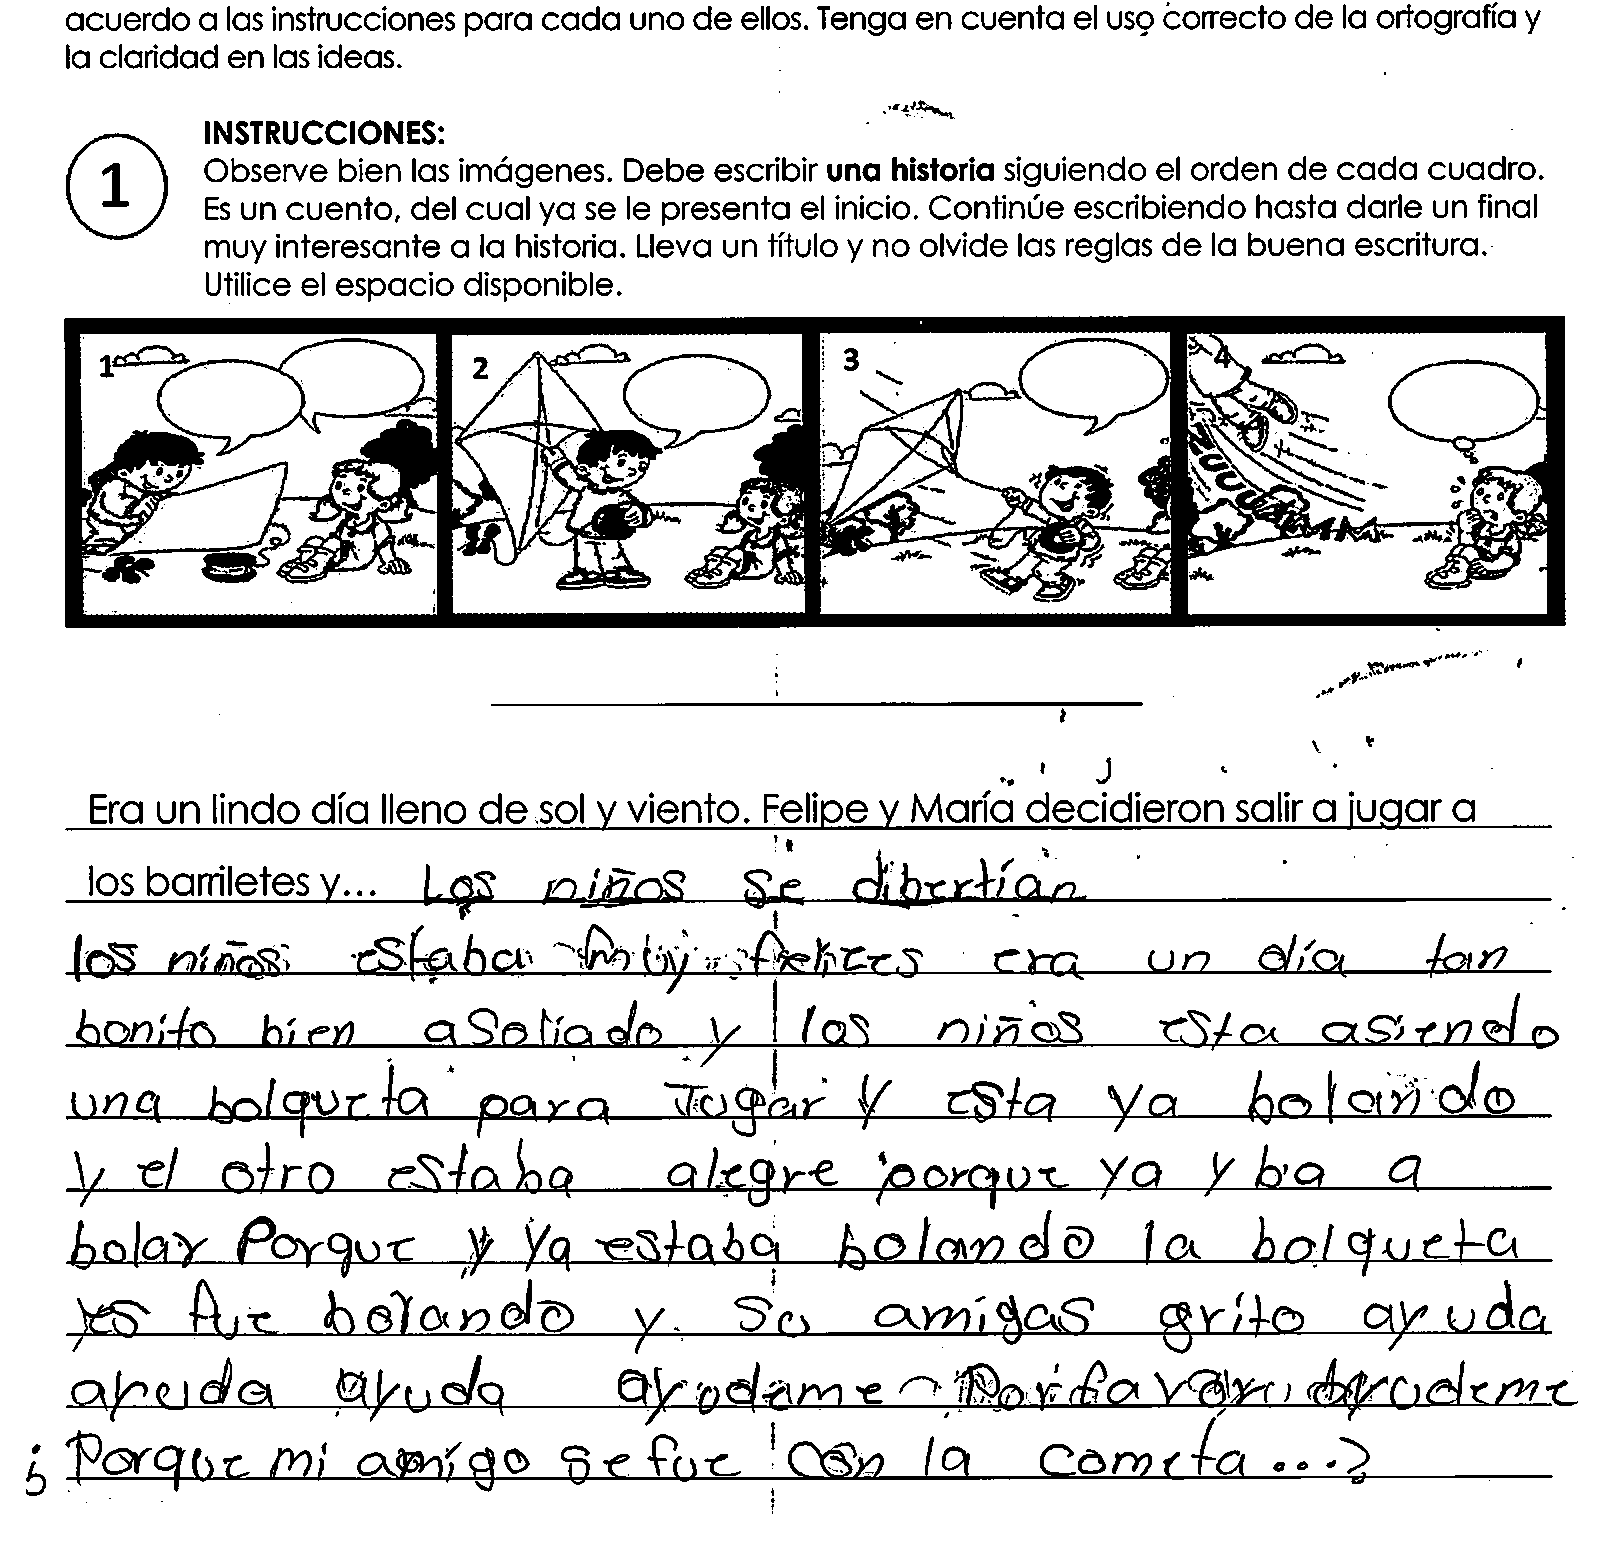 acuerdo a las instrucciones para cada uno de ellos. Tenga en cuenta el uso correcto de la ortografía y
la claridad en las ideas.
1
INSTRUCCIONES:
Observe bien las imágenes. Debe escribir una historia siguiendo el orden de cada cuadro.
Es un cuento, del cual ya se le presenta el inicio. Continúe escribiendo hasta darle un final
muy interesante a la historia. Lleva un título y no olvide las reglas de la buena escritura.
Utilice el espacio disponible.
1 2 3 4
Era un lindo día lleno de sol y viento. Felipe y María decidieron salir a jugar a
los barriletes y... Los niños se dibertían
los niños estaba muy felices era un día tan
bonito bien asoliado y los niños esta asiendo
una bolqueta para Jugar y esta ya bolando
y el otro estaba alegre porque ya y ba a
bolar Porque y ya estaba bolando la bolqueta
fue bolando y su amigas grito ayuda
ayuda ayuda ayudame Por favor ayudeme
¿Porque mi amigo se fue con la cometa...?